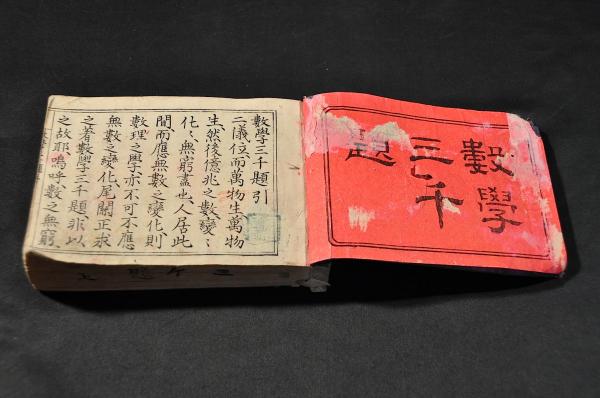 數學
三千
題
數學三千題引
二儀位而萬物生萬物
生然後億兆之數變〻
化〻無窮盡也人居此
間而應無數之變化則
數理之學亦不可不應
無數之變化尾關正求
之著數學三千題非以
之故耶嗚呼數之無窮